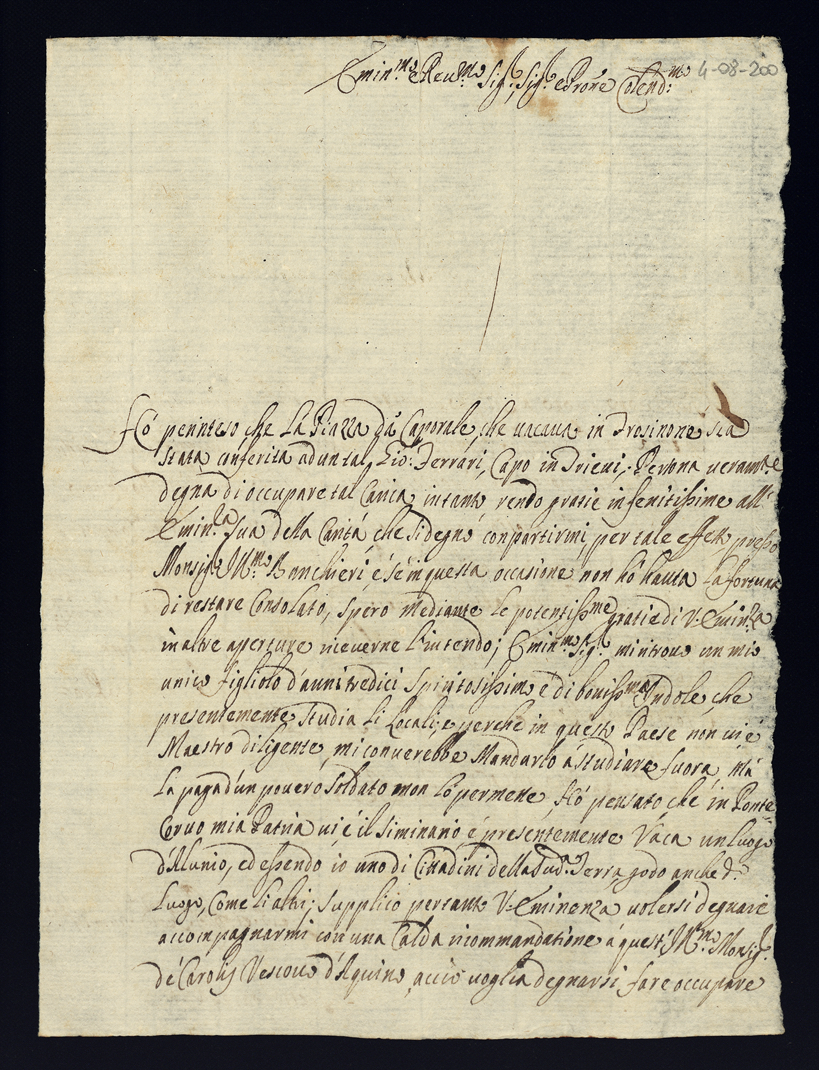 Emin.mo e Reu.mo Sig.r, Sig.r e Prone Colend.mo 4-08-200
Hò perinteso che La Piazza dà Caporale, che uacaua in Frosinone sia
stata conferita ad un tal Gio: Ferrari, Capo in Trieui, Persona ueramte
degna di occupare tal Carica, in tanto rendo gratie infenitissime all'
Emin.za Sua della Carità, che si degnò conpartirmi, per tale effetto presso
Monsig.r Ill.mo Banchieri, e sè in questa occasione non hò hauta La fortuna
di restare Consolato, spero mediante le potentissme gratie di V. Emin.za
in altre aperture riceuerne L'intendo; Emin.mo Sig.r mi trouo un mio
unico figliolo d'anni tredici Spiritosissimo e di bonissma Indole, che
presentemente studia Li Locali; e perche in questo Paese non ui è
Maestro diligente, mi conuerebbe Mandarlo à studiare fuora, mà
La paga d'un pouero soldato non Lo permette, Hò pensato che in Ponte
Coruo mia Patria ui è il Siminario è presentemente Vaca un Luogo
d'Alunio, ed essendo io uno di Cittadini della Sud.a Terra godo anche d.o
Luogo, Come Li altri; supplico pertanto V. Eminenza uolersi degnare
accompagnarmi con una Calda ricommandatione à quest'Ill.mo Monsig.r
de Carolis Vescouo d'Aquino, acciò uoglia degnarsi fare occupare